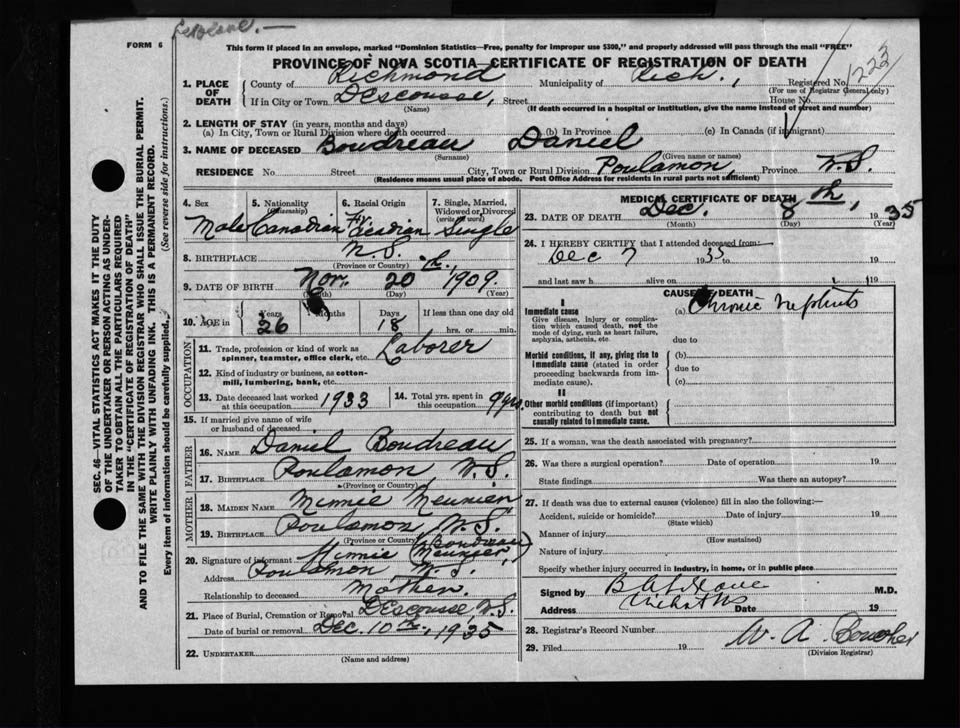 FORM 6
This form if placed in an envelope, marked "Dominion Statistics—Free, penalty for improper use $300," and properly addressed will pass through the mail "FREE"
PROVINCE OF NOVA SCOTIA—CERTIFICATE OF REGISTRATION OF DEATH
1. PLACE OF DEATH
County of Richmond Municipality of Rich., Registered No. 1223
(For use of Registrar General only)
If in City or Town Descousse, Street House No.
(Name) (If death occurred in a hospital or institution, give the name instead of street and number)
2. LENGTH OF STAY (in years, months and days)
(a) In City, Town or Rural Division where death occurred (b) In Province (c) In Canada (if immigrant)
3. NAME OF DECEASED Boudreau Daniel
(Surname) (Given name or names)
RESIDENCE No. Street City, Town or Rural Division Poulamon, Province N.S.
(Residence means usual place of abode. Post Office Address for residents in rural parts not sufficient)
4. Sex Male
5. Nationality (Citizenship) Canadian
6. Racial Origin
7. Single, Married, Widowed or Divorced (write the word) Single
8. BIRTHPLACE N.S.
(Province or Country)
9. DATE OF BIRTH Nov. 20th, 1909
(Month) (Day) (Year)
10. AGE in Years Months Days If less than one day old
26 18 hrs. or min.
OCCUPATION
11. Trade, profession or kind of work as spinner, teamster, office clerk, etc. Laborer
12. Kind of industry or business, as cotton-mill, lumbering, bank, etc.
13. Date deceased last worked at this occupation 1933
14. Total yrs. spent in this occupation 9 yrs.
15. If married give name of wife or husband of deceased
FATHER
16. NAME Daniel Boudreau
17. BIRTHPLACE Poulamon N.S.
(Province or Country)
MOTHER
18. MAIDEN NAME Minnie Meunier
19. BIRTHPLACE Poulamon N.S.
(Province or Country)
20. Signature of informant Minnie (Boudreau Meunier)
Address Poulamon N.S.
Relationship to deceased Mother.
21. Place of Burial, Cremation or Removal Descousse N.S.
Date of burial or removal Dec. 10th, 1935
22. UNDERTAKER
(Name and address)
MEDICAL CERTIFICATE OF DEATH
23. DATE OF DEATH Dec. 8th, 1935
(Month) (Day) (Year)
24. I HEREBY CERTIFY that I attended deceased from:
Dec 7 1935 to 19
and last saw h alive on 19
CAUSE OF DEATH
I
Immediate cause (a) Chronic nephritis
Give disease, injury or complication which caused death, not the mode of dying, such as heart failure, asphyxia, asthenia, etc.
due to
Morbid conditions, if any, giving rise to immediate cause (stated in order proceeding backwards from immediate cause).
(b)
due to
(c)
II
Other morbid conditions (if important) contributing to death but not causally related to immediate cause.
25. If a woman, was the death associated with pregnancy?
26. Was there a surgical operation? Date of operation 19
State findings Was there an autopsy?
27. If death was due to external causes (violence) fill in also the following:—
Accident, suicide or homicide? Date of injury 19
(State which)
Manner of injury
(How sustained)
Nature of injury
Specify whether injury occurred in industry, in home, or in public place
Signed by M.D.
Address Date 19
28. Registrar's Record Number
29. Filed 19 W. A. Boucher
(Division Registrar)
SEC. 46—VITAL STATISTICS ACT MAKES IT THE DUTY
OF THE UNDERTAKER OR PERSON ACTING AS UNDER-
TAKER TO OBTAIN ALL THE PARTICULARS REQUIRED
IN THE "CERTIFICATE OF REGISTRATION OF DEATH"
AND TO FILE THE SAME WITH THE DIVISION REGISTRAR WHO SHALL ISSUE THE BURIAL PERMIT.
WRITE PLAINLY WITH UNFADING INK. THIS IS A PERMANENT RECORD.
Every item of information should be carefully supplied. (See reverse side for instructions.)